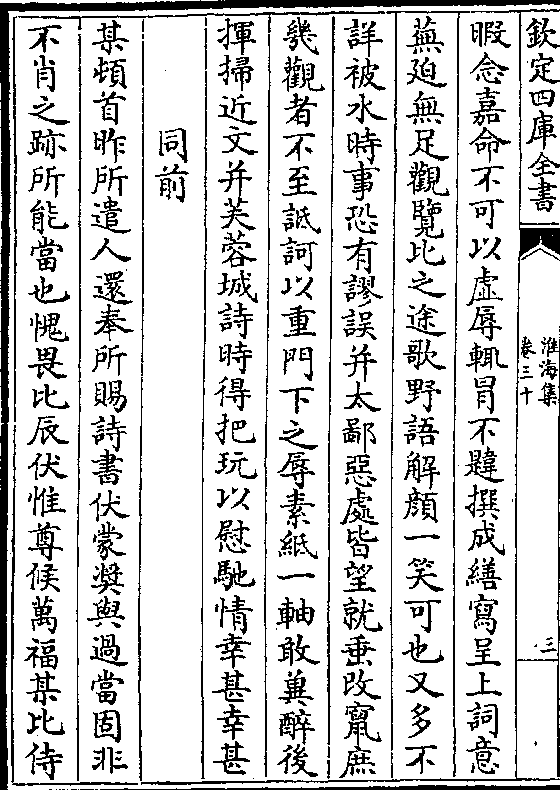 欽定四庫全書
淮海集
卷三十
三
暇念嘉命不可以虛辱輒冒不韙撰成繕寫呈上詞意
蕪廹無足觀覽比之途歌野語解顔一笑可也又多不
詳被水時事恐有謬誤并太鄙惡處皆望就垂改竄庶
幾觀者不至詆訶以重門下之辱素紙一軸敢兾醉後
揮掃近文并芙蓉城詩時得把玩以慰馳情幸甚幸甚
同前
某頓首昨所遣人還奉所賜詩書伏蒙奬與過當固非
不肖之跡所能當也愧畏比辰伏惟尊候萬福某比侍